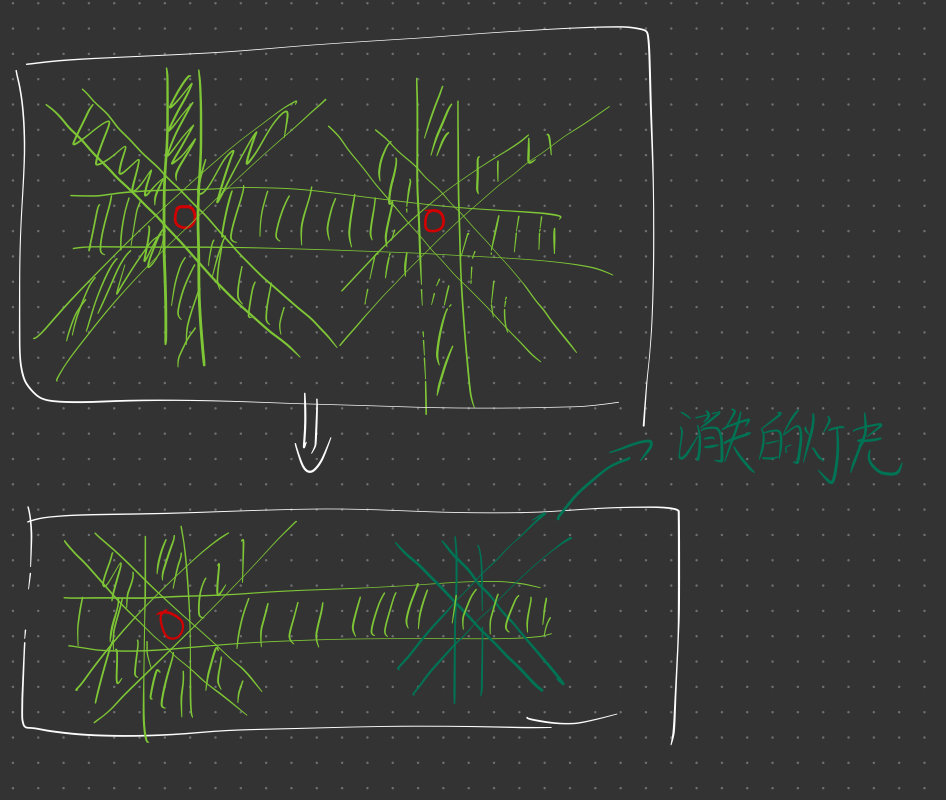 消失的灯光